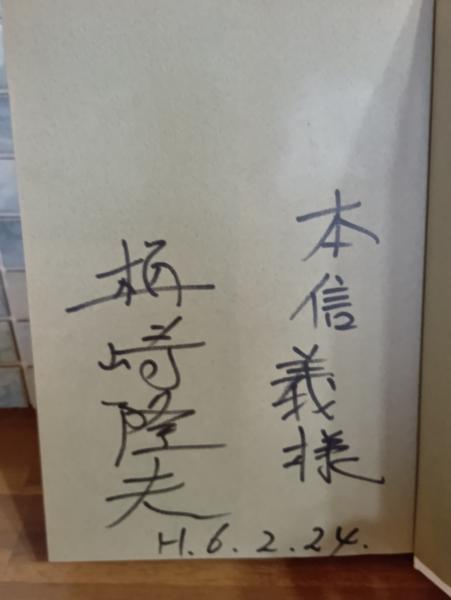 本信義様
梅崎隆夫
H.6.2.24.